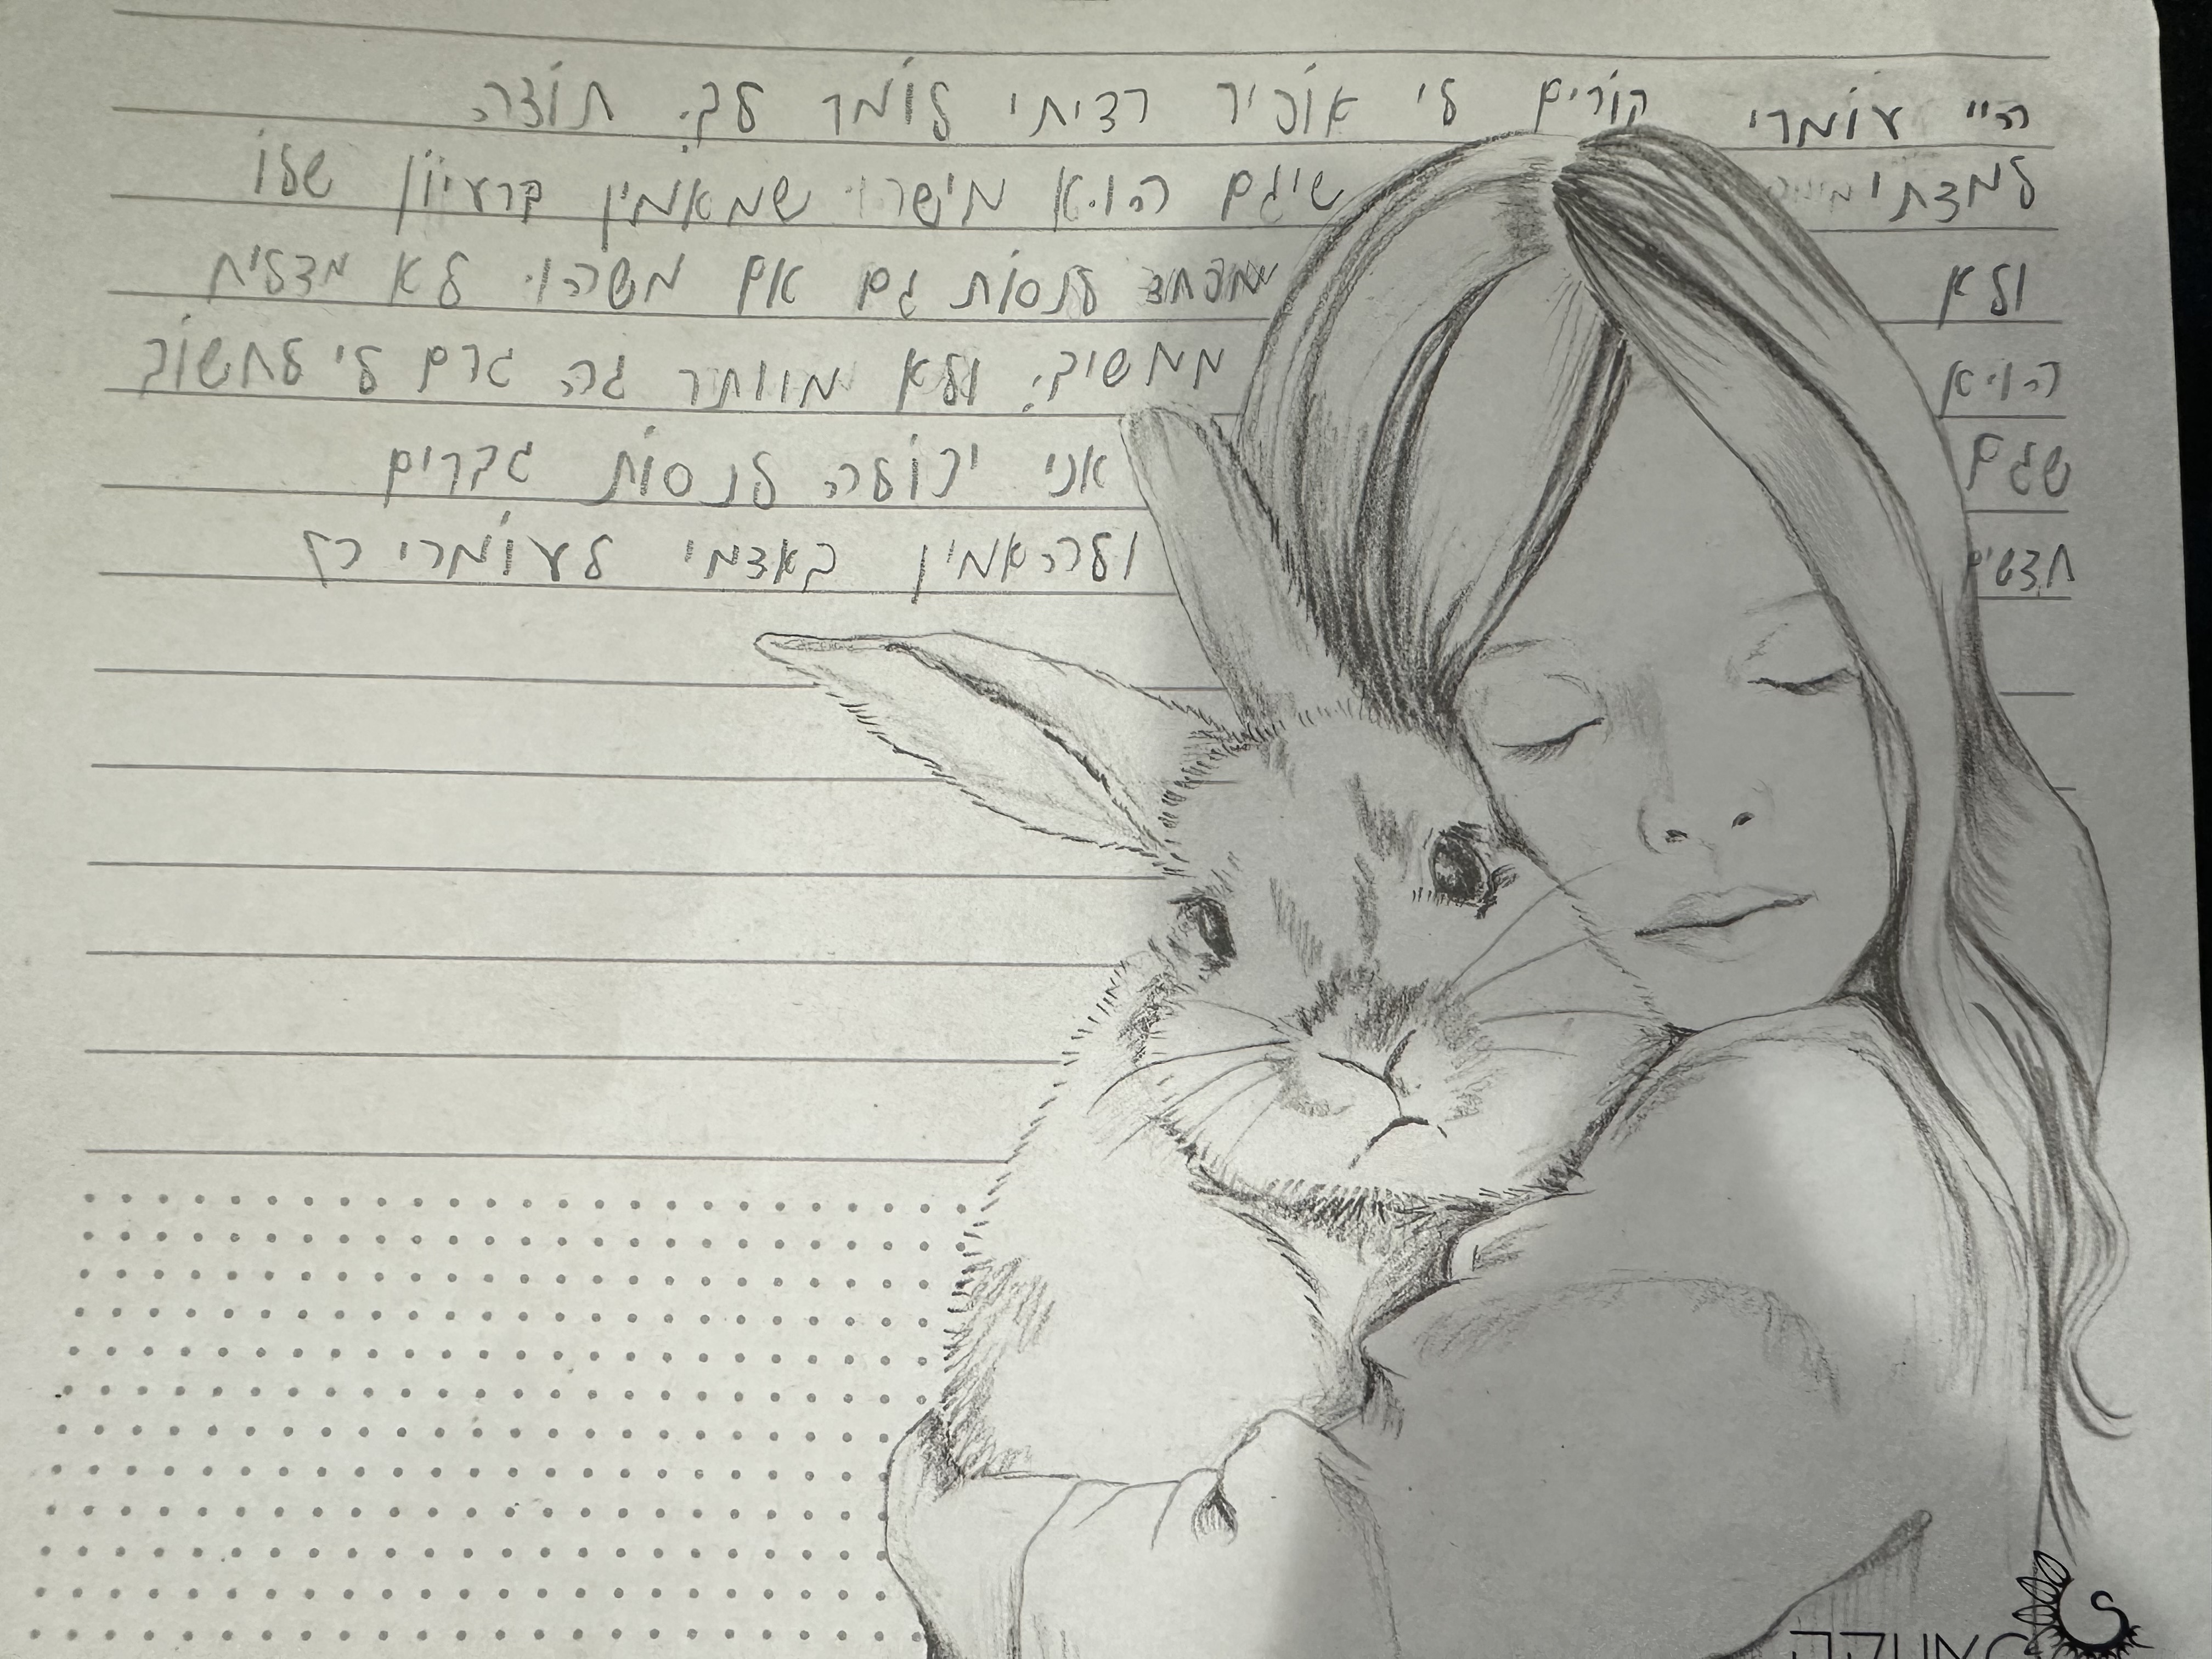 היי עומרי קורים לי אופיר רציתי לומר לך: תוצה
למצתי שיגם הוא מישהו שמאמין ברעיון שלו
ולא מפחצ לנסות גם אם משהו לא מצליח
הוא ממשיך: ולא מוותר גה גרם לי לחשוב
שגם אני יכולה לנסות גברים
חצשים ולהאמין באצמי לעומרי רז